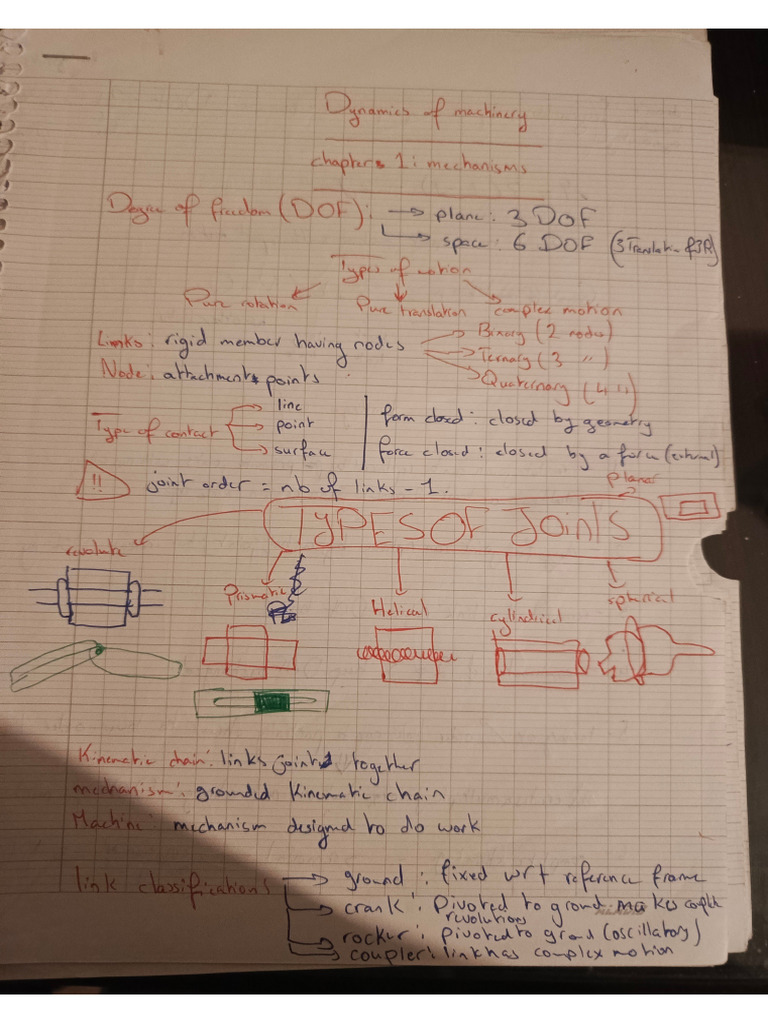 Dynamics of machinery
chapter 1: mechanisms
Degree of freedom (DOF): → plane: 3 DOF
→ space: 6 DOF (3 Translation & 3R)
Types of motion
Pure rotation Pure translation complex motion
Links: rigid member having nodes → Binary (2 nodes)
→ Ternary (3 〃)
→ Quaternary (4 〃)
Node: attachment points
Type of contact → line
→ point
→ surface
form closed: closed by geometry
force closed: closed by a force (external)
!! joint order = nb of links - 1.
planar
TYPES OF JOINTS
revolute
Prismatic
Helical
cylindrical
spherical
Kinematic chain: links joint together
mechanism: grounded Kinematic chain
Machine: mechanism designed to do work
link classifications → ground: fixed wrt reference frame
→ crank: Pivoted to ground makes complete
revolutions
→ rocker: pivoted to ground (oscillatory)
→ coupler: link has complex motion